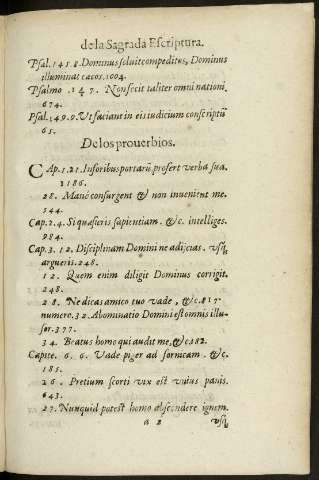 de la Sagrada Escriptura.
Psal. 145. 8. Dominus soluit compeditus, Dominus
illuminat cæcos. 1004.
Psalmo . 147. Non fecit taliter omni nationi.
674.
Psal. 149. 9. Ut faciant in eis iudicium conscriptũ
65.
De los prouerbios.
CAp. 1. 21. In foribus portarũ profert verba sua.
1186.
28. Manè consurgent & non inuenient me.
544.
Cap. 2. 4. Si quæsieris sapientiam . &c. intelliges.
984.
Cap. 3. 12. Disciplinam Domini ne adijcias . vsq;
argueris. 248.
12. Quem enim diligit Dominus corrigit.
248.
28. Ne dicas amico tuo vade , &c. 817
numero. 32. Abominatio Domini est omnis illu-
sor. 377.
34. Beatus homo qui audit me, &c. 182.
Capite. 6. 6. Vade piger ad formicam . &c.
185.
26. Pretium scorti vix est vnius panis.
643.
27. Nunquid potest homo abscondere ignem.
a 2 vsq;